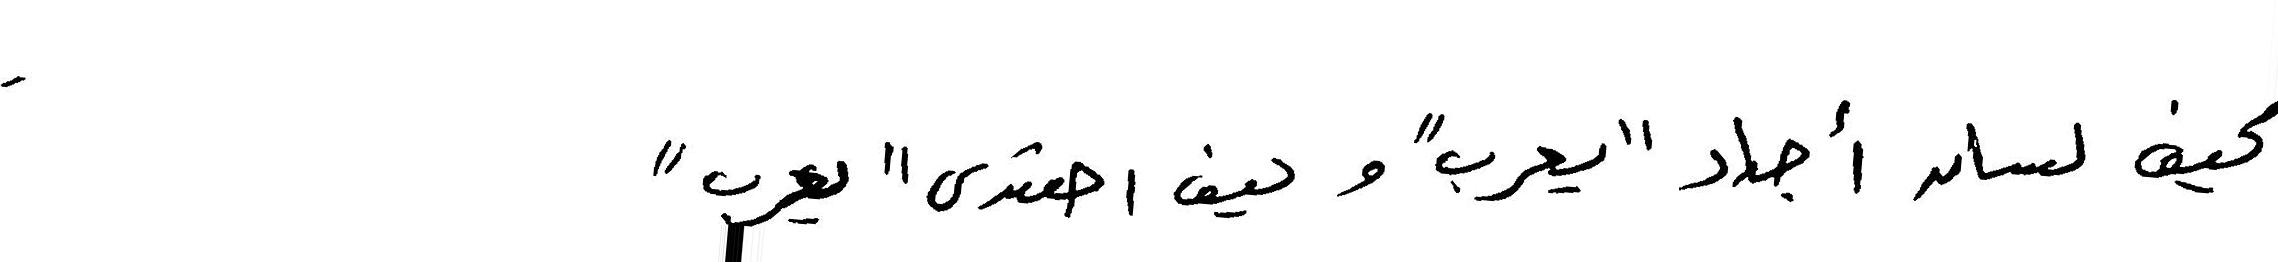 كيف لسان أجداد "يعرب" و كيف اهتدى "يعرب"